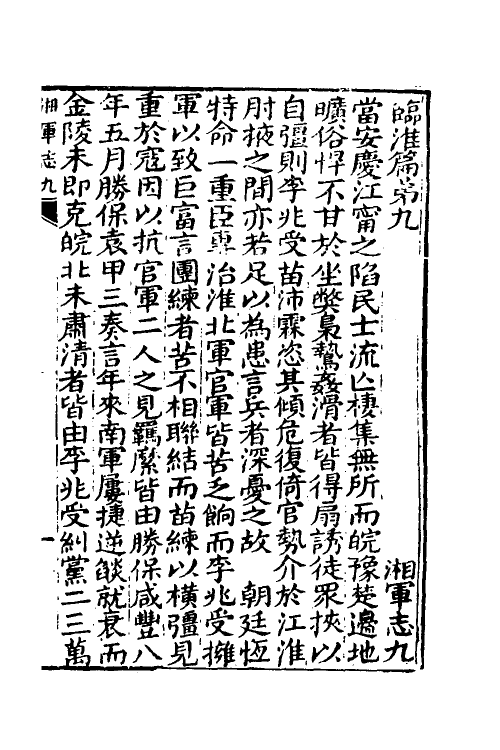 臨淮篇弟九　湘軍志九
當安慶江甯之陷民士流亾棲集無所而皖豫楚邊地
曠俗悍不甘於坐獘梟鷙姦滑者皆得扇誘徒眾挾以
自彊則李兆受苗沛霖恣其傾危復倚官勢介於江淮
肘掖之間亦若足以為患言兵者深憂之故　朝廷恆
特命一重臣專治淮北軍官軍皆苦乏餉而李兆受擁
軍以致巨富言團練者苦不相聯結而苗練以橫彊見
重於寇因以抗官軍二人之見羈縻皆由勝保咸豐八
年五月勝保袁甲三奏言年來南軍屢捷逆燄就衰而
金陵未即克皖北未肅清者皆由李兆受糾黨二三萬
湘軍志九　一